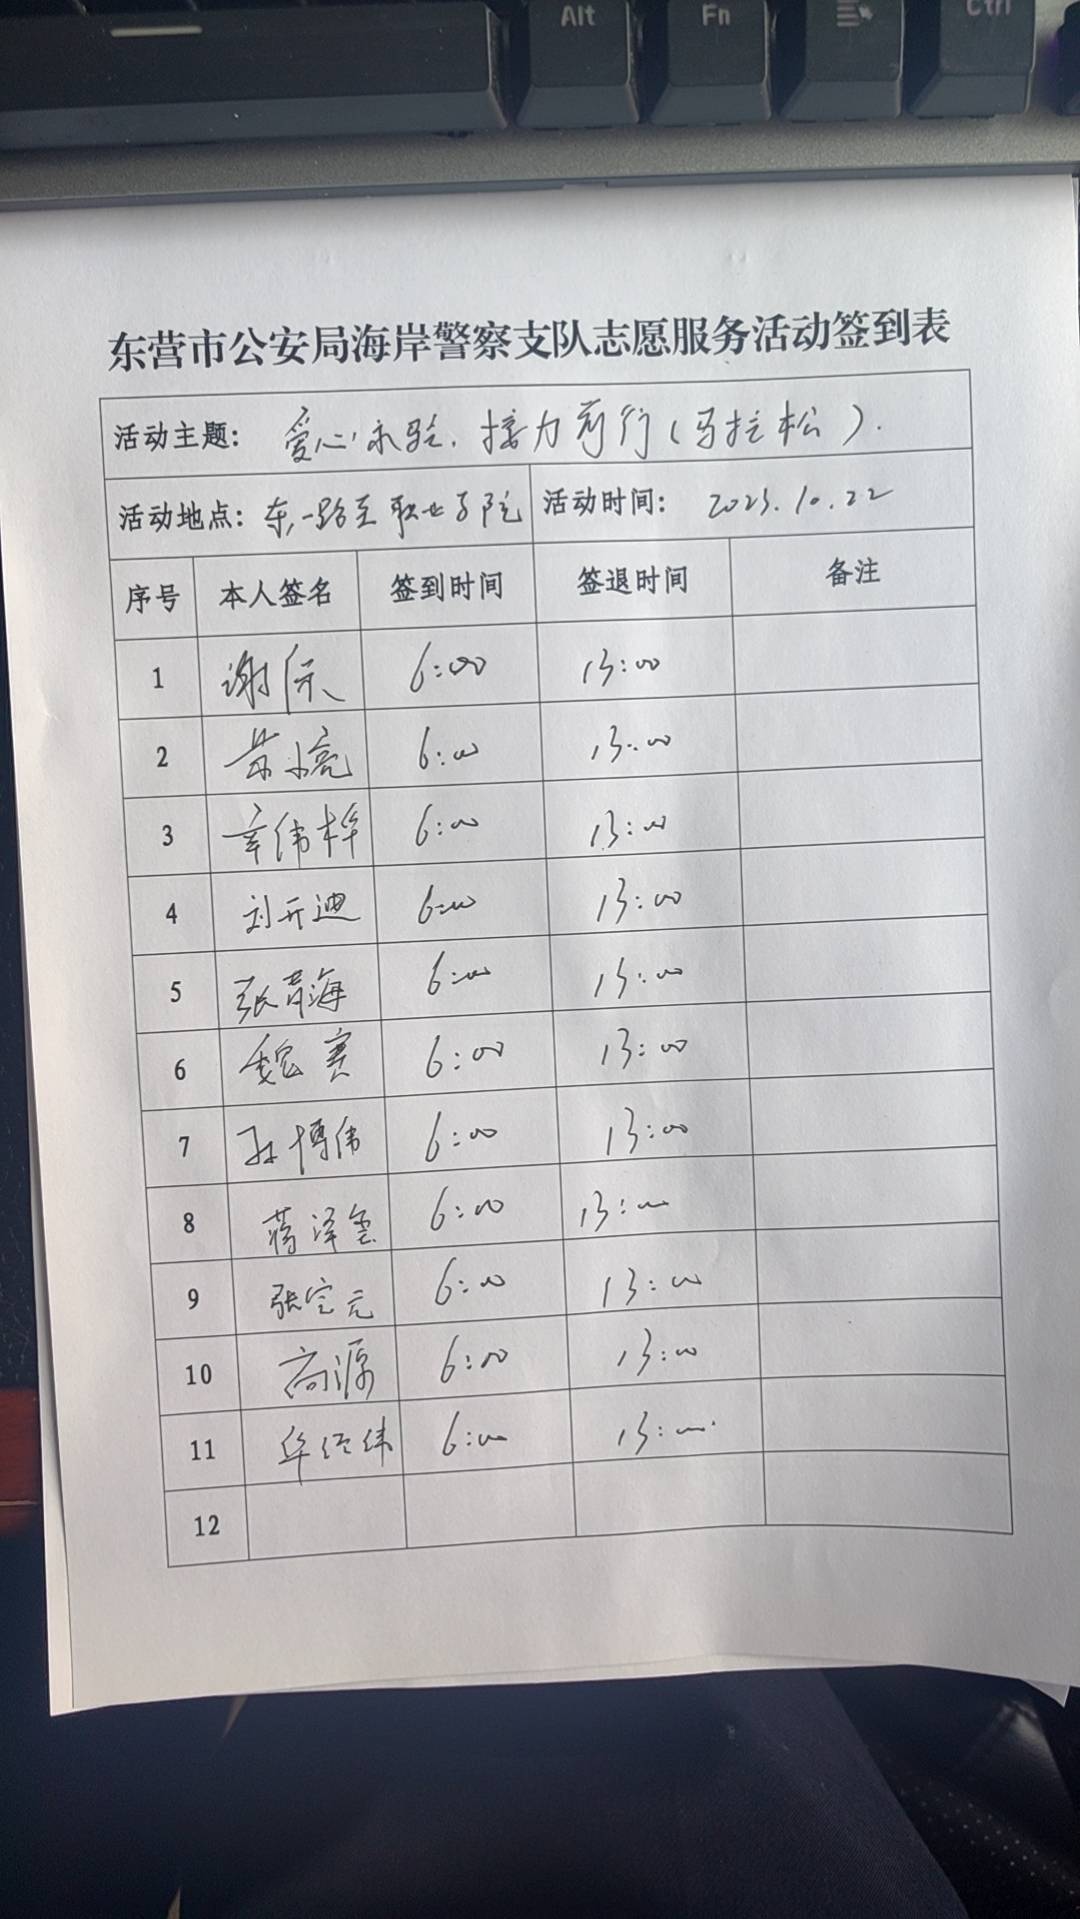 Alt
Fn
Ctrl
东营市公安局海岸警察支队志愿服务活动签到表
活动主题: 爱心永驻,接力前行(马拉松).
活动地点: 东一路至职业学院 活动时间: 2023.10.22
序号 本人签名 签到时间 签退时间 备注
1 谢 6:00 13:00
2 亮 6:00 13:00
3 辛伟桦 6:00 13:00
4 刘开迪 6:00 13:00
5 张青海 6:00 13:00
6 魏赛 6:00 13:00
7 孙博伟 6:00 13:00
8 蒋泽 6:00 13:00
9 张宝元 6:00 13:00
10 高源 6:00 13:00
11 牟经纬 6:00 13:00
12